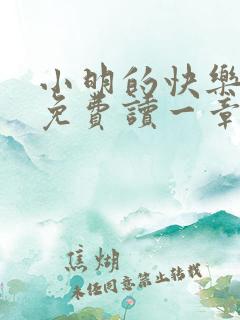 小明的快樂
免費讀一章
焦煳
未经同意禁止转载